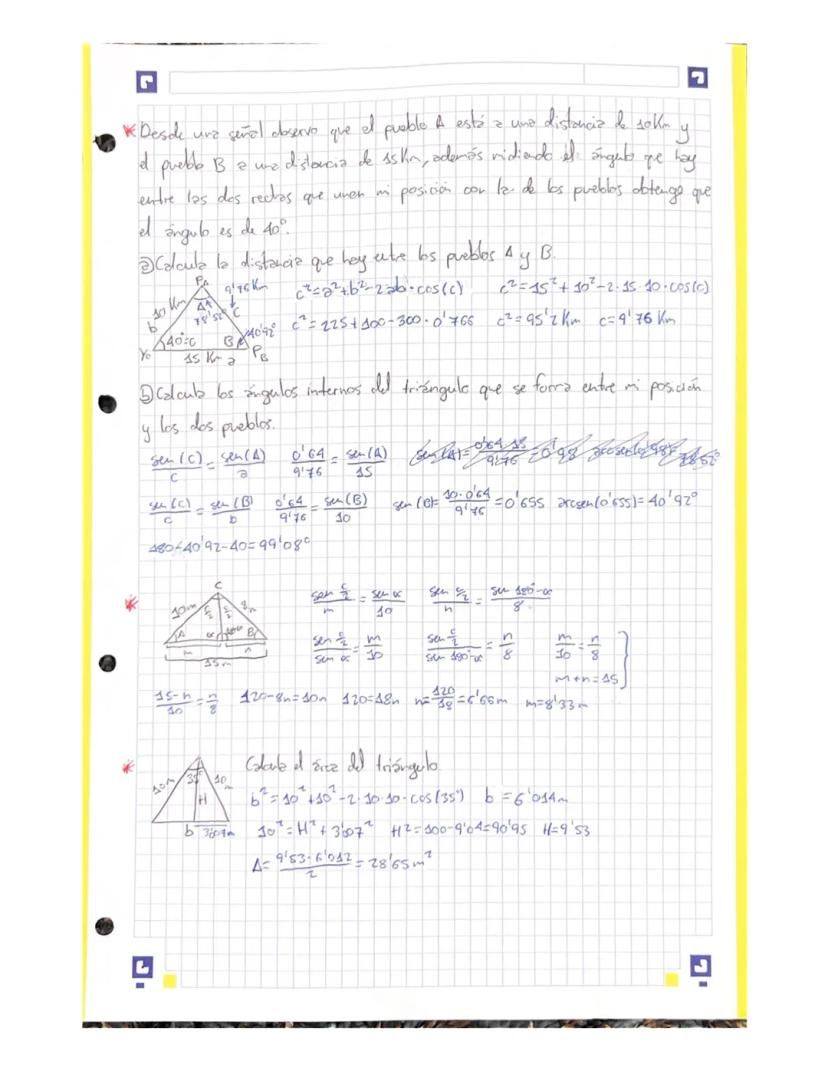 * Desde una señal observo que el pueblo A está a una distancia de 10Km y
el pueblo B a una distancia de 15Km, además midiendo el ángulo que hay
entre las dos rectas que unen mi posición con la de los pueblos obtengo que
el ángulo es de 40°.
a) Calcula la distancia que hay entre los pueblos A y B.
PA 9'76 Km c²=a²+b²-2ab·cos(c) c²=15²+10²-2·15·10·cos(c)
10 Km A 78'52° c
b 40'92° c²=225+100-300·0'766 c²=95'2 Km c=9'76 Km
Yo 40°=C B PB
15 Km a
b) Calcula los ángulos internos del triángulo que se forma entre mi posición
y los dos pueblos.
sen(C)/c = sen(A)/a 0'64/9'76 = sen(A)/15 sen(A)= 0'64·15/9'76 =0'98 arcsen(0'98)= 78'52°
sen(C)/c = sen(B)/b 0'64/9'76 = sen(B)/10 sen(B)= 10·0'64/9'76 =0'655 arcsen(0'655)=40'92°
180-40'92-40=99'08°
* C
10m c/2 c/2 8m sen c/2 / m = sen α / 10 sen c/2 / n = sen 180°-α / 8
A α 180-α B
m n sen c/2 / sen α = m/10 sen c/2 / sen 180°-α = n/8 m/10 = n/8
15m m+n=15
15-n/10 = n/8 120-8n=10n 120=18n n= 120/18 =6'66m m=8'33m
* Calcula el área del triángulo
10m 35° 10m b²=10²+10²-2·10·10·cos(35°) b=6'014m
H
b 3'607m 10²=H²+3'607² H²=100-9'04=90'95 H=9'53
A= 9'53·6'012/2 =28'65m²